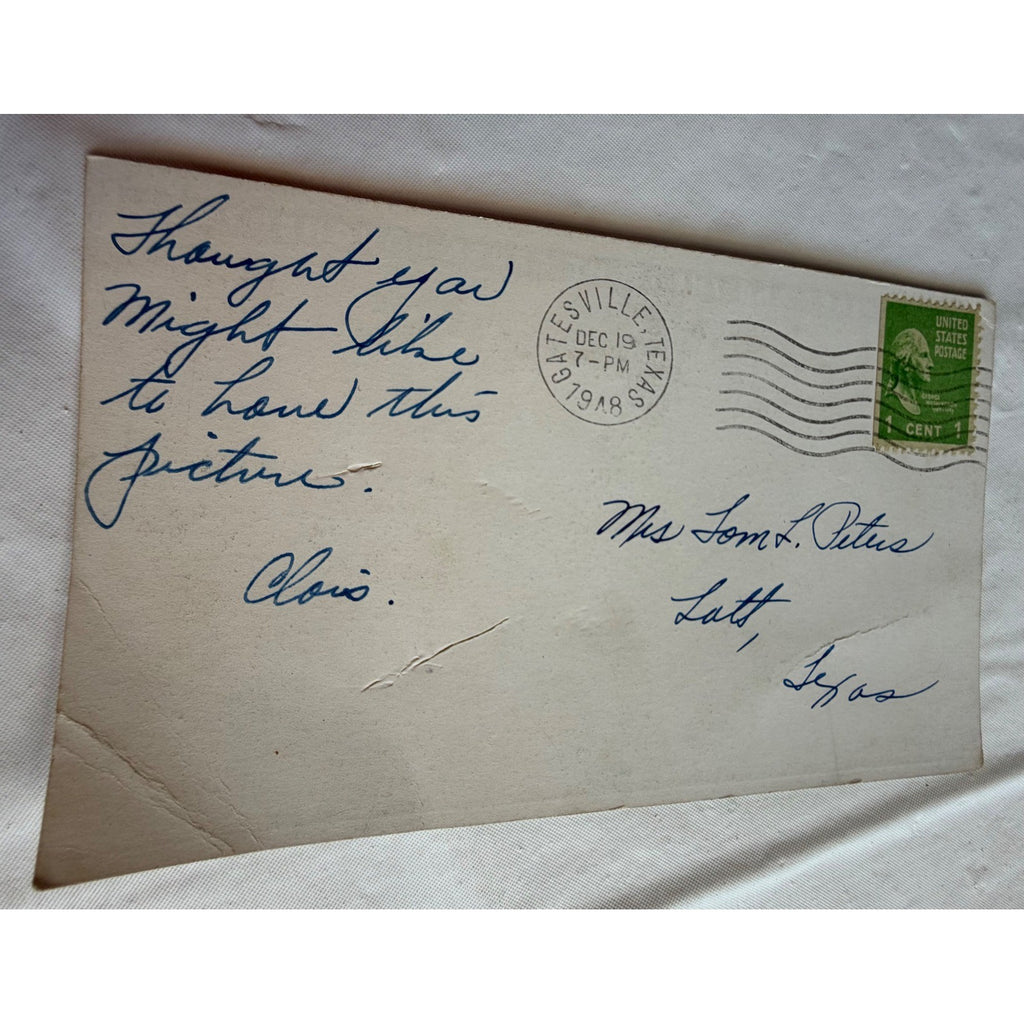 Thought you
Might like
to have this
picture.
Clois.
GATESVILLE, TEXAS
DEC 19
7-PM
1948
UNITED
STATES
POSTAGE
1 CENT 1
Mrs Tom L. Peters
Latt,
Texas